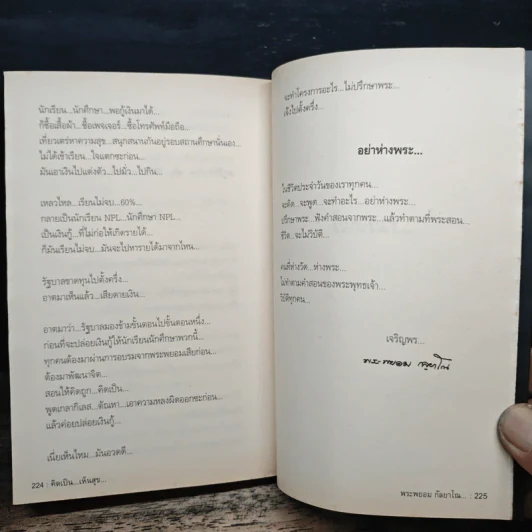 นักเรียน...นักศึกษา...พอกู้เงินมาได้...
ก็ซื้อเสื้อผ้า...ซื้อเพจเจอร์...ซื้อโทรศัพท์มือถือ...
เที่ยวเตร่หาความสุข...สนุกสนานกันอยู่รอบสถานศึกษานั่นเอง...
ไม่ได้เข้าเรียน...ใจแตกซะก่อน...
มันเอาเงินไปแต่งตัว...ไปมั่ว...ไปกิน...
เหลวไหล...เรียนไม่จบ...60%...
กลายเป็นนักเรียน NPL...นักศึกษา NPL...
เป็นเงินกู้...ที่ไม่ก่อให้เกิดรายได้...
ก็มันเรียนไม่จบ...มันจะไปหารายได้มาจากไหน...
รัฐบาลขาดทุนไปตั้งครึ่ง...
อาตมาเห็นแล้ว...เสียดายเงิน...
อาตมาว่า...รัฐบาลมองข้ามขั้นตอนไปขั้นตอนหนึ่ง...
ก่อนที่จะปล่อยเงินกู้ให้นักเรียนนักศึกษาพวกนี้...
ทุกคนต้องมาผ่านการอบรมจากพระพยอมเสียก่อน...
ต้องมาพัฒนาจิต...
สอนให้คิดถูก...คิดเป็น...
ขูดเกลากิเลส...ตัณหา...เอาความหลงผิดออกซะก่อน...
แล้วค่อยปล่อยเงินกู้...
เนี่ยเห็นไหม...มันอวดดี...
224 : คิดเป็น...เห็นสุข...
จะทำโครงการอะไร...ไม่ปรึกษาพระ...
เจ๊งไปตั้งครึ่ง...
อย่าห่างพระ...
ในชีวิตประจำวันของเราทุกคน...
จะคิด...จะพูด...จะทำอะไร...อย่าห่างพระ...
ปรึกษาพระ...ฟังคำสอนจากพระ...แล้วทำตามที่พระสอน...
ชีวิต...จะไม่วิบัติ...
คนที่ห่างวัด...ห่างพระ...
ไม่ทำตามคำสอนของพระพุทธเจ้า...
วิบัติทุกคน...
เจริญพร...
พระพยอม กลฺยาโณ
พระพยอม กัลยาโณ... : 225